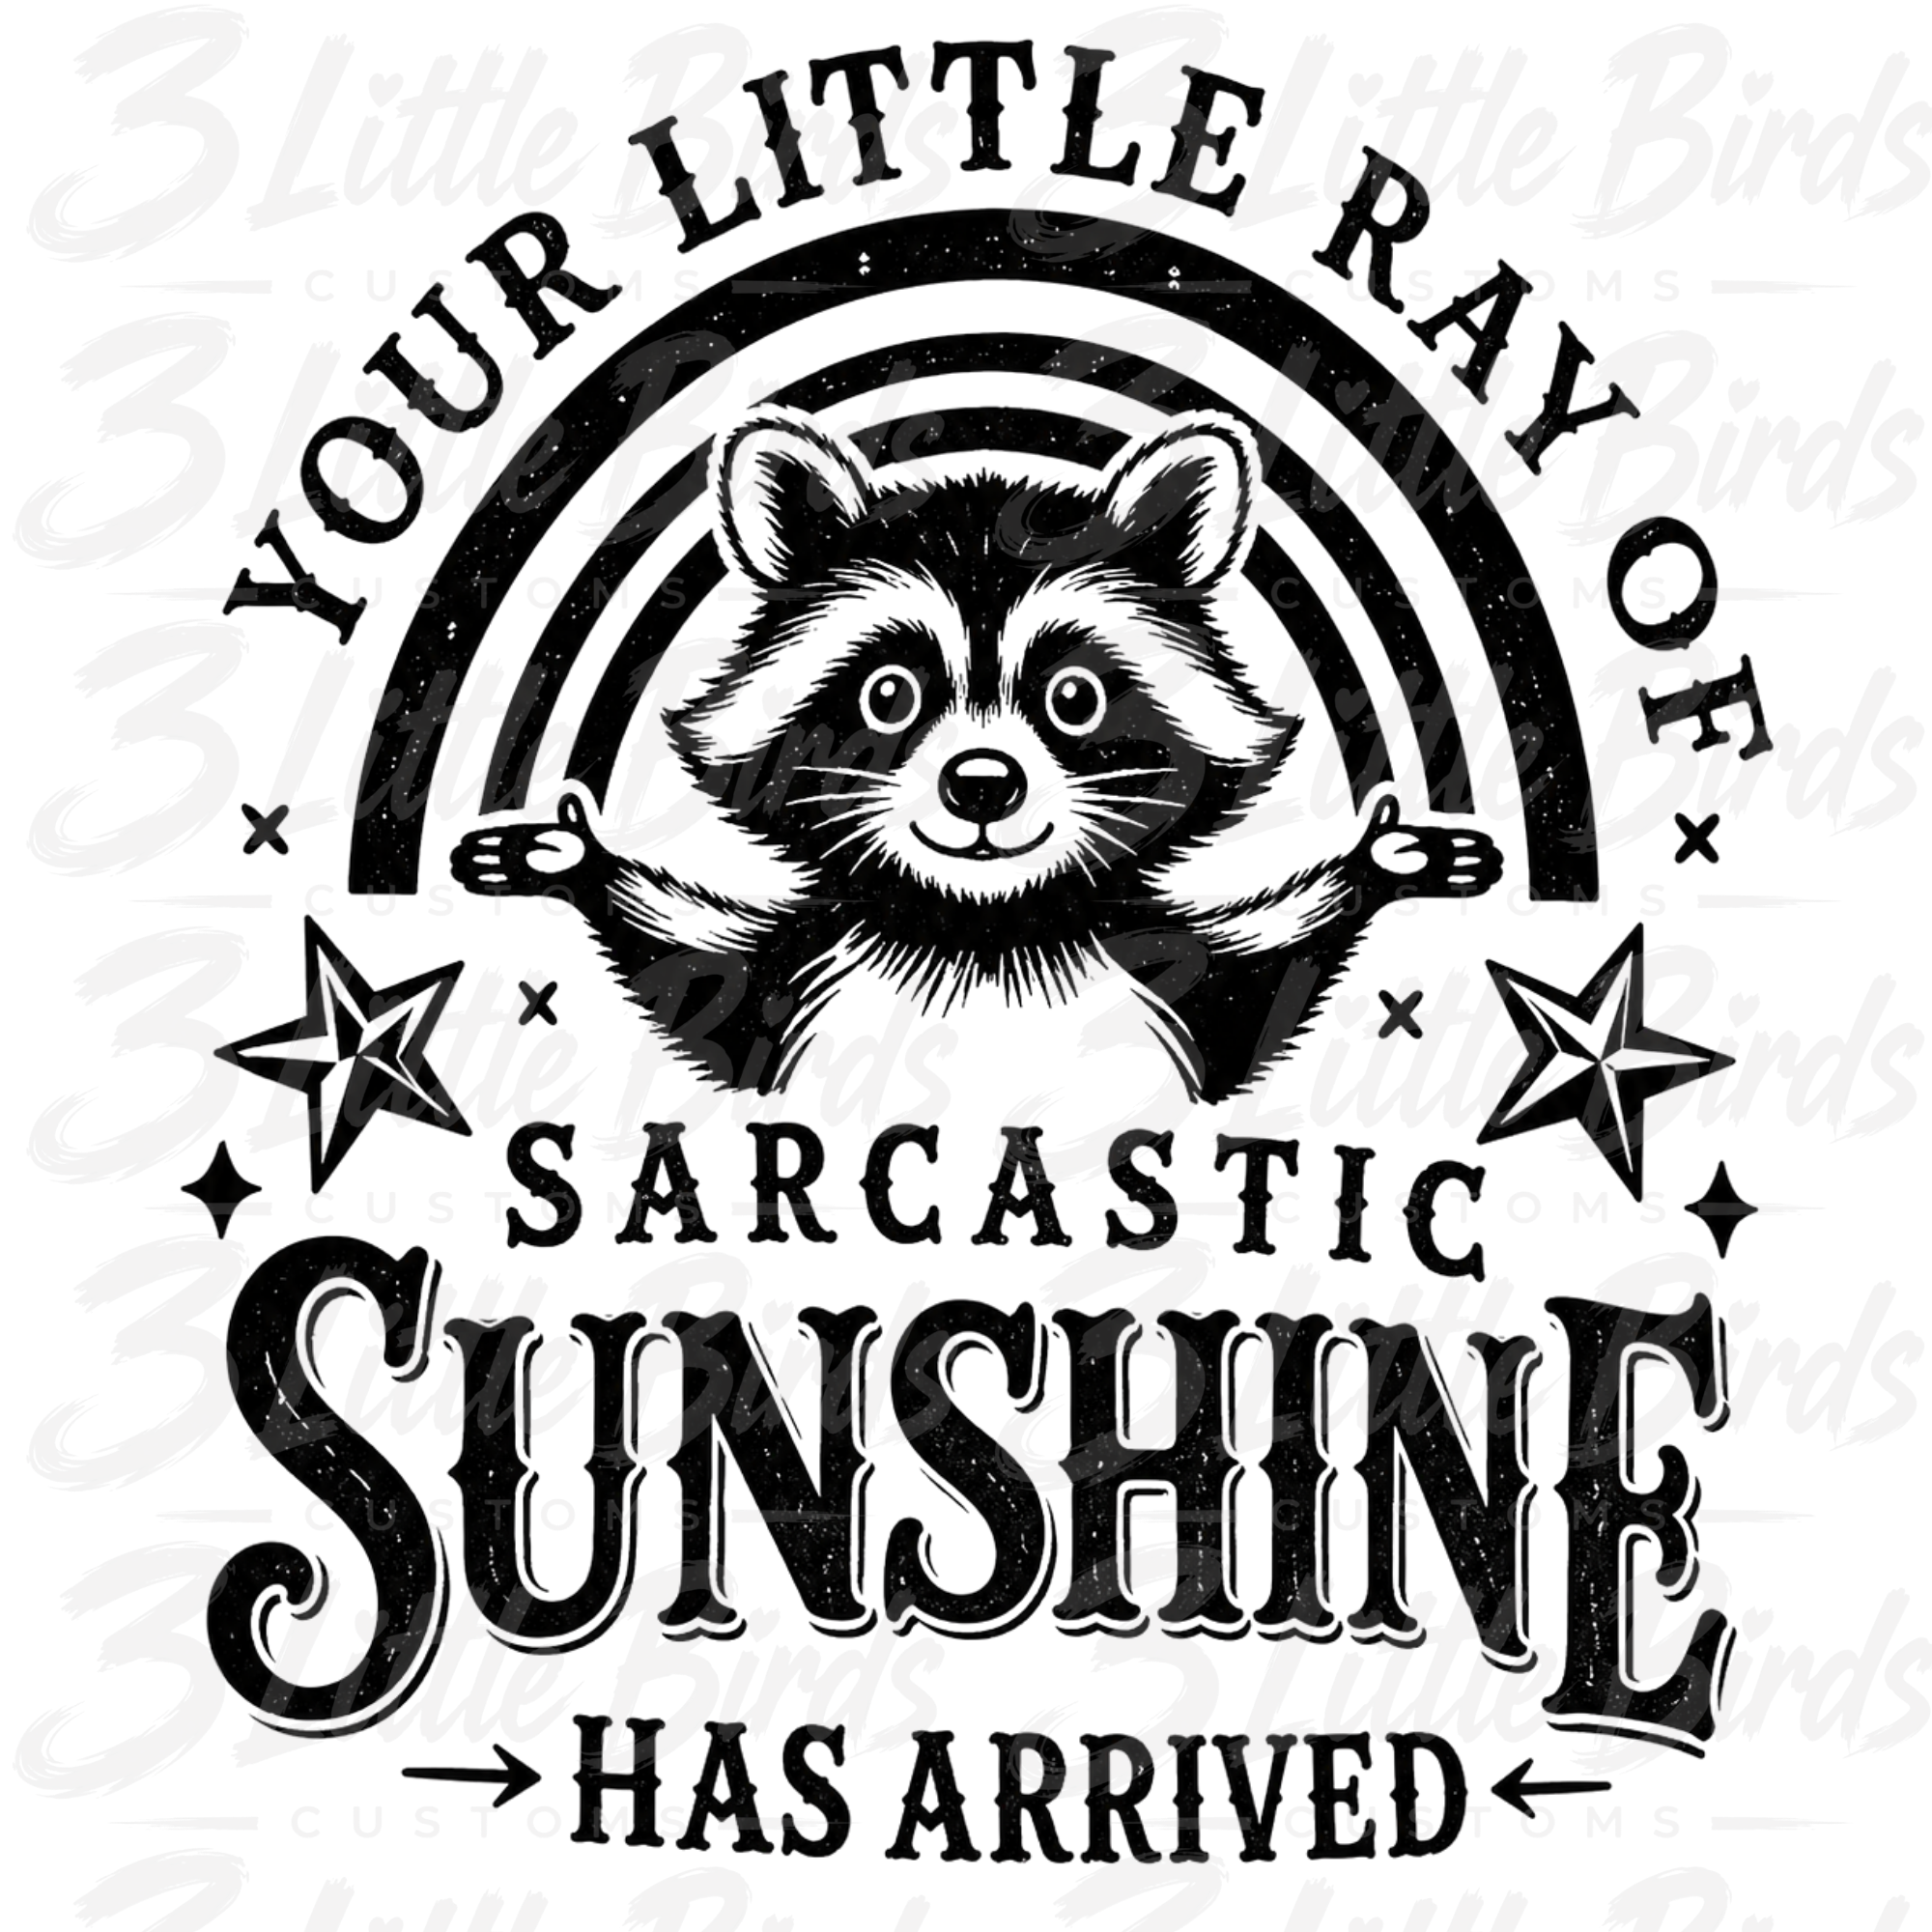 YOUR LITTLE RAY OF
SARCASTIC
SUNSHINE
HAS ARRIVED
3 Little Birds
CUSTOMS